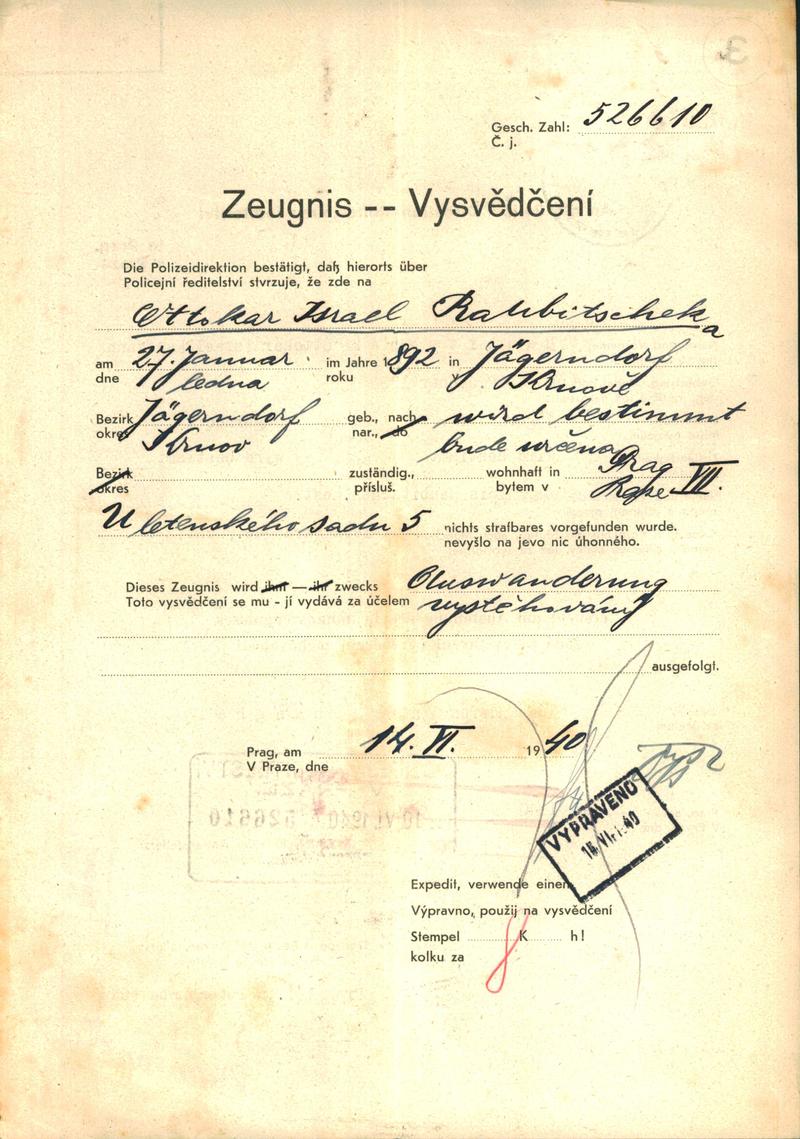 Gesch. Zahl: 526610
Č. j.
Zeugnis -- Vysvědčení
Die Polizeidirektion bestätigt, daß hierorts über
Policejní ředitelství stvrzuje, že zde na
Ottokar Israel Raubitschek
a
am 27. Januar im Jahre 1892 in Jägerndorf
dne ledna roku v Krnově
Bezirk Jägerndorf geb., nach wird bestimmt
okres Krnov nar., do bude určena
Bezirk zuständig., wohnhaft in Prag
okres přísluš. bytem v Praze VII.
U letenského sadu 5 nichts strafbares vorgefunden wurde.
nevyšlo na jevo nic úhonného.
Dieses Zeugnis wird ihm — ihr zwecks Auswanderung
Toto vysvědčení se mu - jí vydává za účelem vystěhování
ausgefolgt.
Prag, am 14. VI. 1940
V Praze, dne
VYPRAVENO
14 VI. 40
Expedit, verwende einen
Výpravno, použij na vysvědčení
Stempel 8 K h!
kolku za